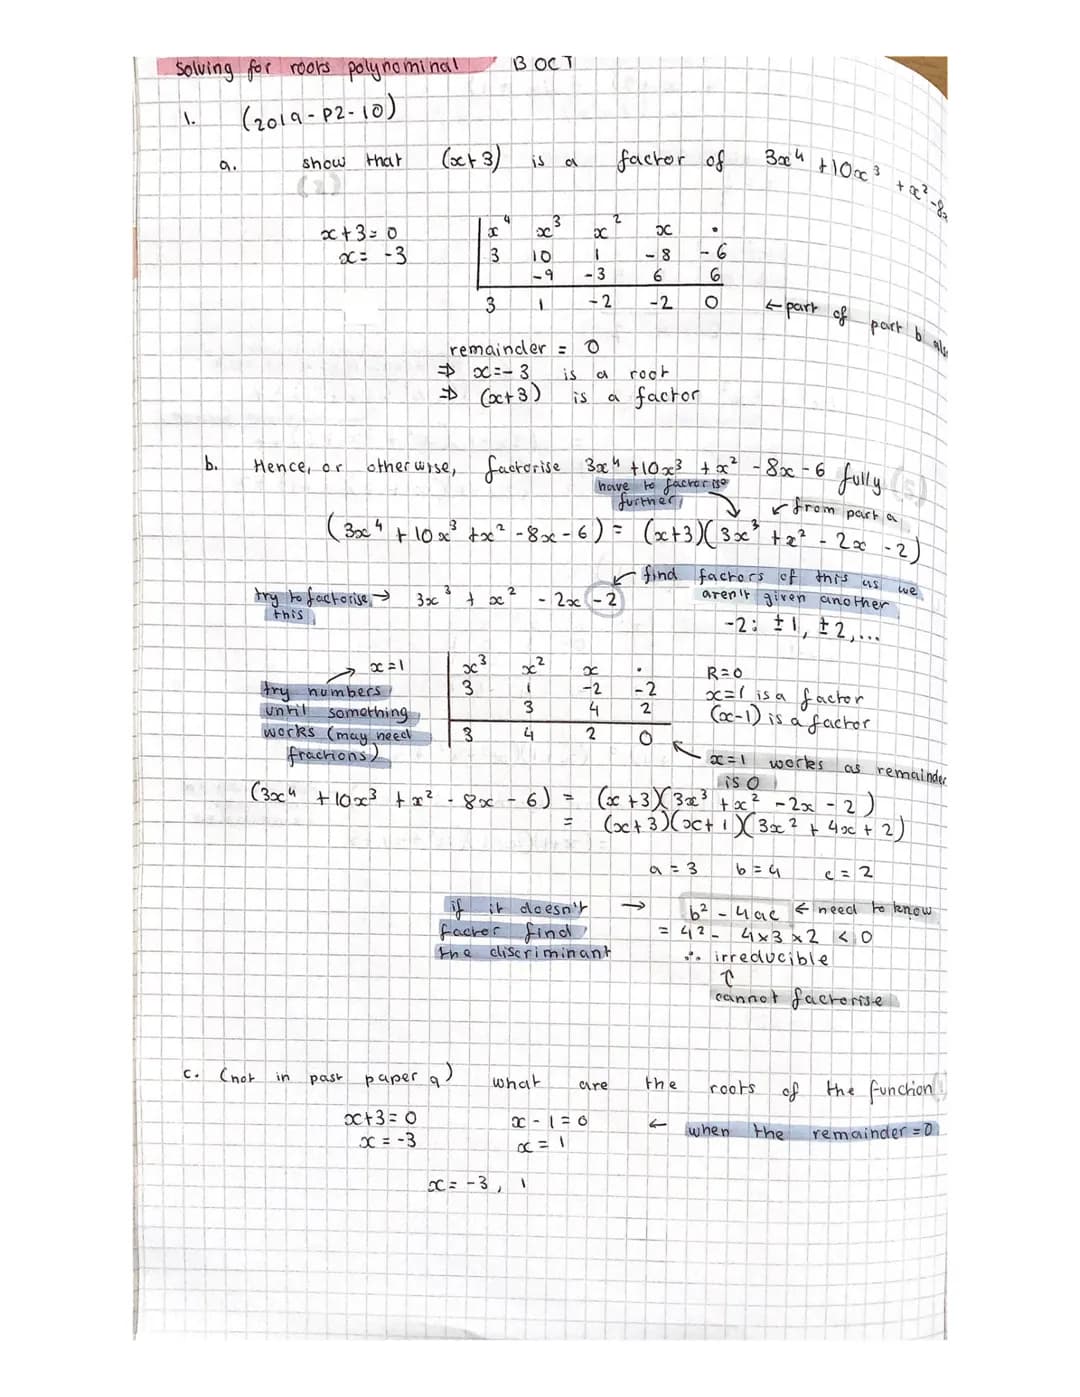 Solving for roots polynominal 13 OCT
1. (2019-P2-10)
a. show that (x+3) is a factor of 3x⁴ +10x³ + x² -8x
(2)
x+3=0
x= -3
x⁴ x³ x² x •
3 10 1 -8 -6
-9 -3 6 6
3 1 -2 -2 0 ← part of part b also
remainder = 0
⇒ x=-3 is a root
⇒ (x+3) is a factor
b. Hence, or otherwise, factorise 3x⁴ +10x³ +x² -8x -6 fully (5)
have to factorise
further
← from part a
(3x⁴ + 10x³ +x² -8x -6) = (x+3)(3x³ +x² - 2x -2)
find factors of this as we
aren't given another
try to factorise → 3x³ + x² - 2x -2
this
-2: ±1, ±2,...
→ x=1
try numbers
until something
works (may need
fractions)
x³ x² x •
3 1 -2 -2
3 4 2
3 4 2 0
R=0
x=1 is a factor
(x-1) is a factor
x=1 works as remainder
is 0
(3x⁴ +10x³ +x² - 8x - 6) = (x+3)(3x³ +x² -2x -2)
= (x+3)(x+1)(3x² + 4x + 2)
a = 3 b = 4 c = 2
if it doesn't →
factor find
the discriminant
b² - 4ac ← need to know
= 4² - 4×3×2 < 0
∴ irreducible
↑
cannot factorise
c. (not in past paper q) what are the roots of the function
x+3=0 x-1=0 ← when the remainder = 0
x = -3 x = 1
x = -3, 1